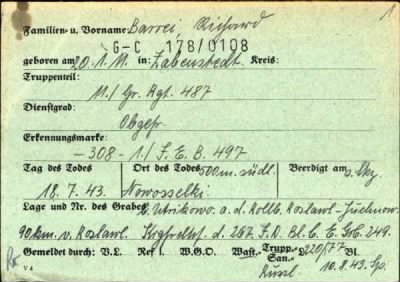 1
Familien- u. Vorname: Barrei, Richard
G-C 178/0108
geboren am 20.1.11 in: Zabenstedt Kreis:
Truppenteil:
11./ Gr. Rgt. 487
Dienstgrad:
Obgefr.
Erkennungsmarke:
-308- 1./ J.E.B. 497
Tag des Todes Ort des Todes 500m südl. Beerdigt am
18.7.43. Nowosselki
Lage und Nr. des Grabes a. d. Rollb. Roslawl-Juchnow
90km. v. Roslawl. d. 267 J.D. Bl. C E. Grb. 249.
Gemeldet durch: V.L. Ref. I W.G.O. Wast.- Trupp.- San.- L 220/77 Bl.
V 4 Russl 10.8.43.